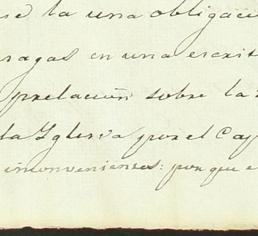 se la una obligaci
ragas en una escrit
prelacion sobre la
la Yglesia por el Cap
inconvenientes: porque e